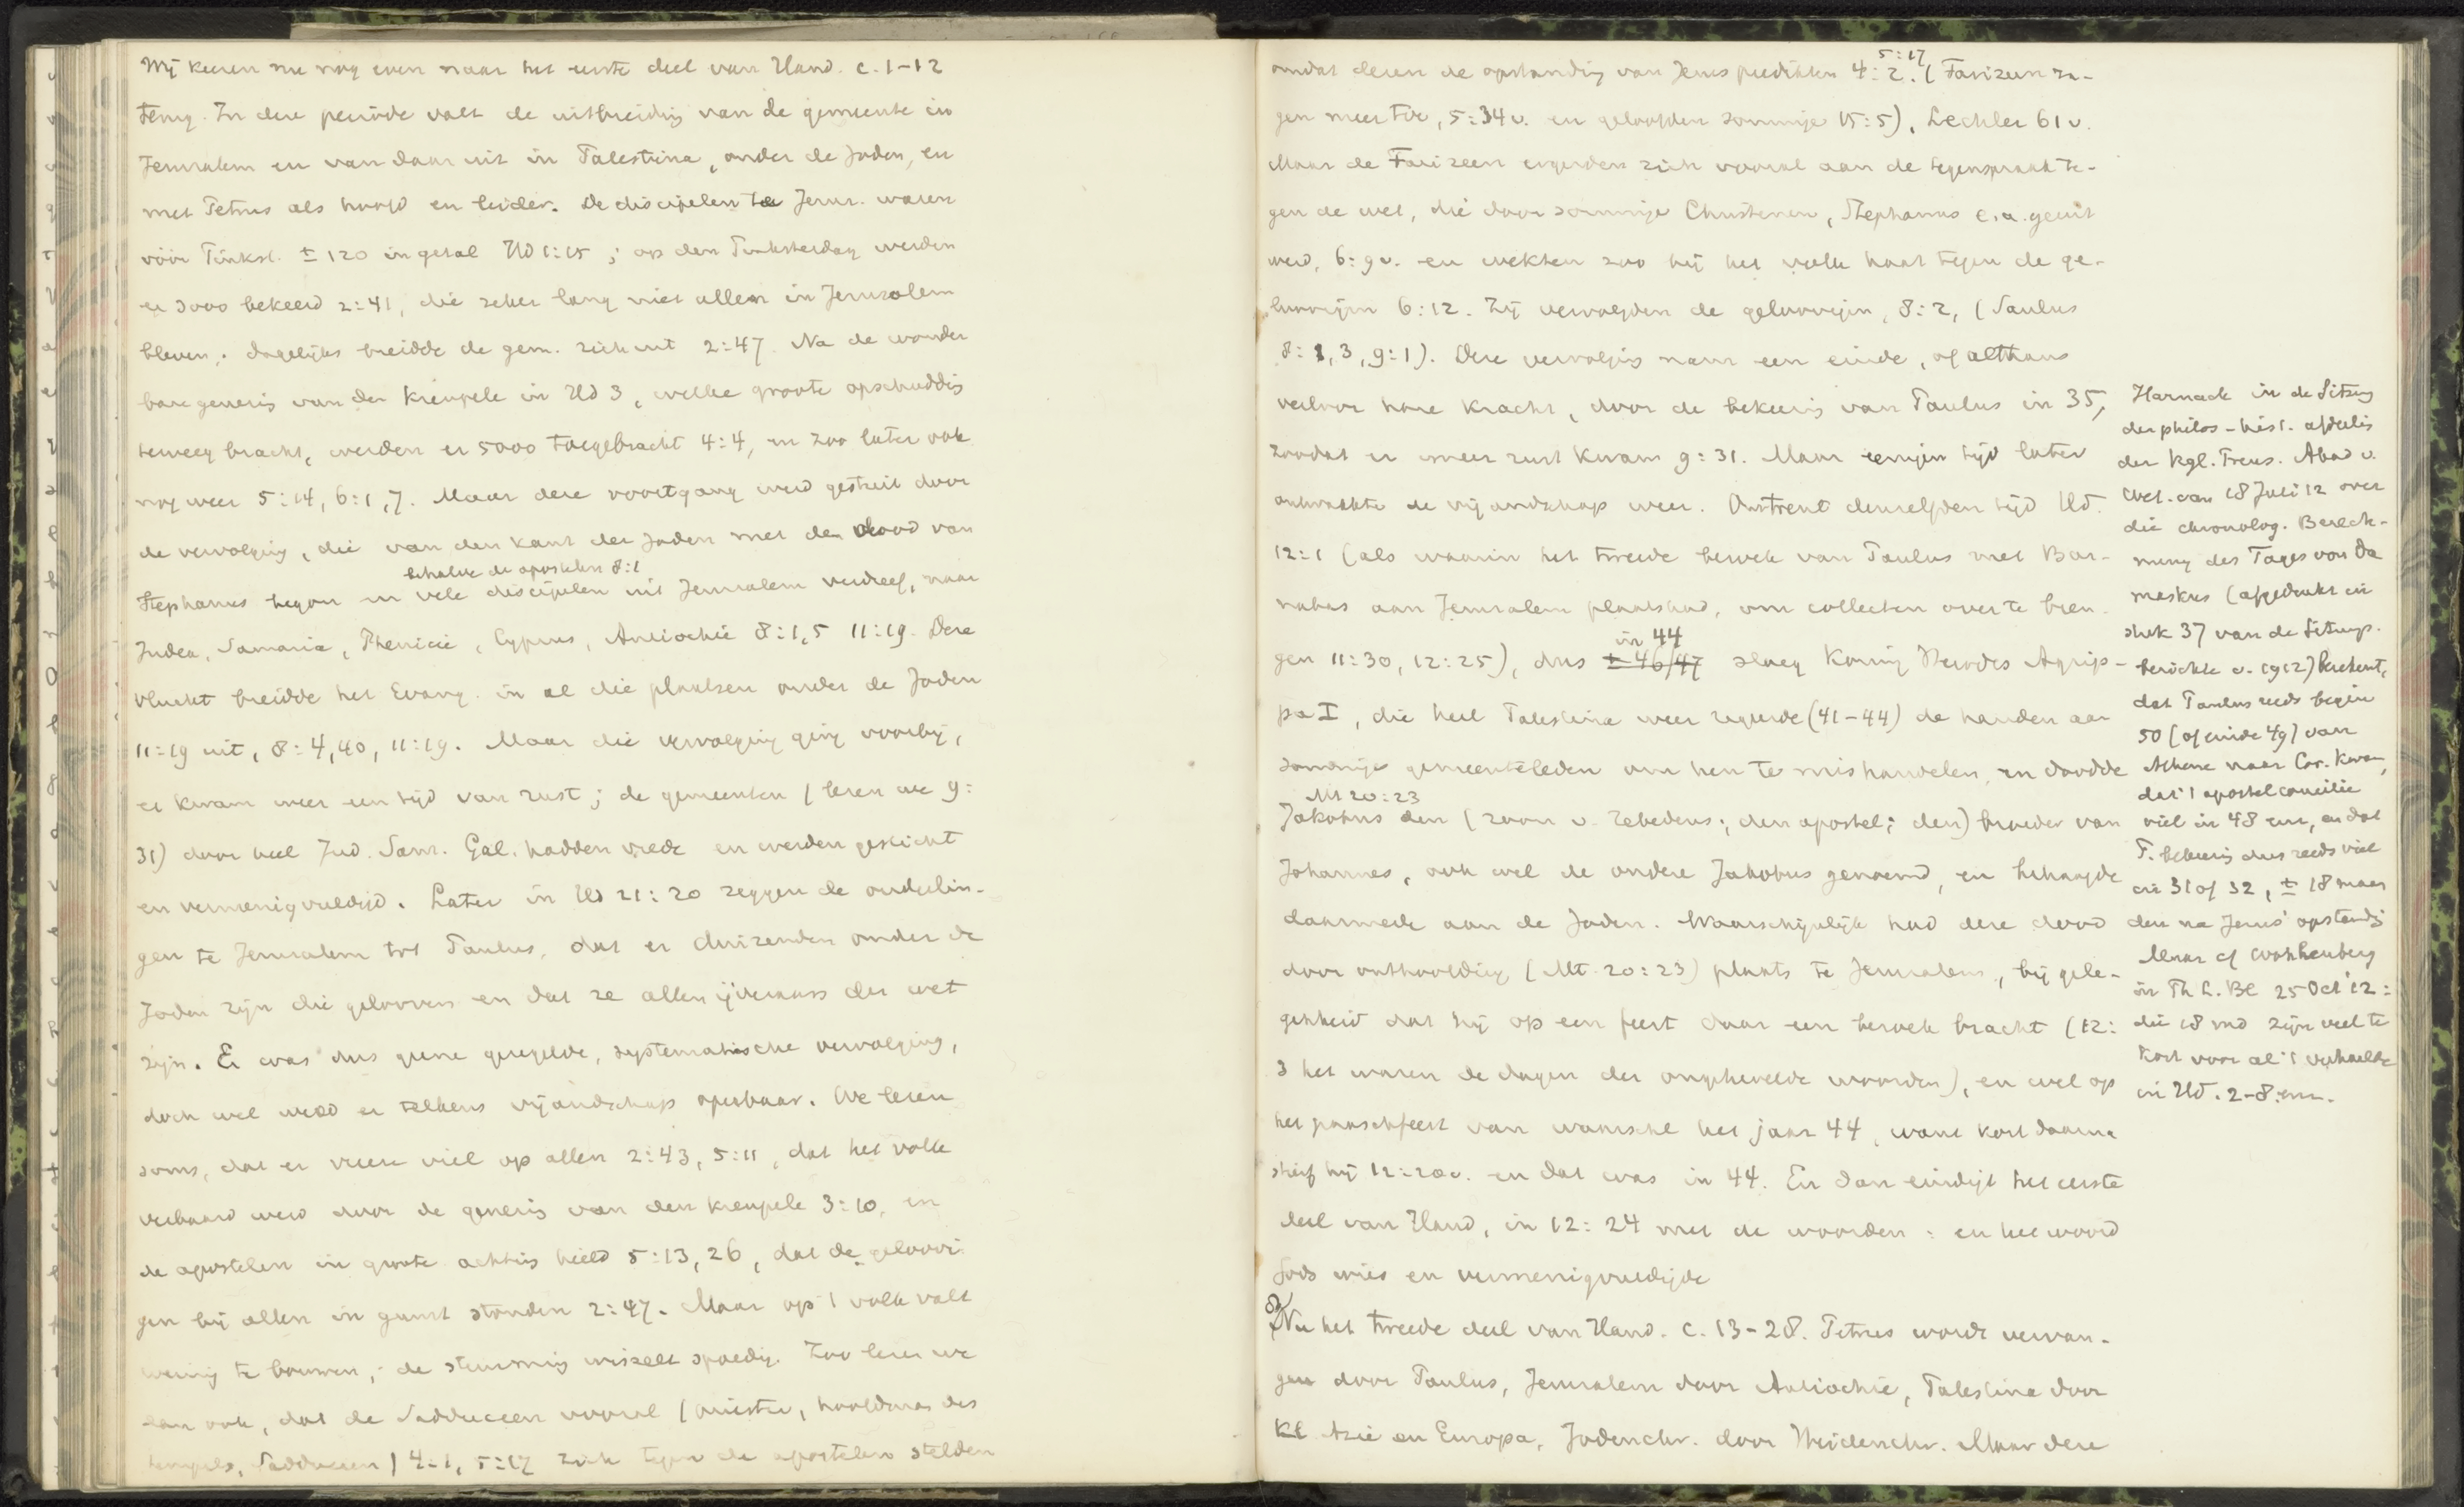 Wij keeren nu nog even naar het eerste deel van Hand. c. 1-12
terug. In deze periode valt de uitbreiding van de gemeente in
Jeruzalem en van daar uit in Palestina, onder de Joden, en
met Petrus als hoofd en leider. De discipelen te Jeruz. waren
vóór Pinkst. ± 120 in getal Hd 1:15; op den Pinksterdag werden
er 3000 bekeerd 2:41, die zeker lang niet allen in Jeruzalem
bleven; dagelijks breidde de gem. zich uit 2:47. Na de wonder
bare genezing van den kreupele in Hd 3, welke groote opschudding
teweeg bracht, werden er 5000 toegebracht 4:4, en zoo later ook
nog weer 5:14, 6:1,7. Maar deze voortgang werd gestuit door
de vervolging, die van den kant der Joden met den dood van
behalve de apostelen 8:1
Stephanus begon en vele discipelen uit Jeruzalem verdreef, naar
Judea, Samaria, Phenicië, Cyprus, Antiochië 8:1,5 11:19. Deze
vlucht breidde het Evang. in al die plaatsen onder de Joden
11:19 uit, 8:4,40, 11:19. Maar die vervolging ging voorbij,
er kwam weer een tijd van rust; de gemeenten (lezen we 9:
31) door heel Jud. Sam. Gal. hadden vrede en werden gesticht
en vermenigvuldigd. Later in Hd 21:20 zeggen de ouderlin-
gen te Jeruzalem tot Paulus, dat er duizenden onder de
Joden zijn die gelooven en dat ze allen ijveraars der wet
zijn. Er was dus geene geregelde, systematische vervolging,
doch wel werd er telkens vijandschap openbaar. We lezen
soms, dat er vreeze viel op allen 2:43, 5:11, dat het volk
verbaasd werd door de genezing van den kreupele 3:10, en
de apostelen in groote achting hield 5:13,26, dat de geloovi-
gen bij allen in gunst stonden 2:47. Maar op 't volk valt
weinig te bouwen; de stemming wisselt spoedig. Zoo lezen we
dan ook, dat de Sadduceen vooral (priester, hoofdman des
tempels, Sadduceen) 4:1, 5:17 zich tegen de apostelen stelden
5:17
omdat dezen de opstanding van Jezus predikten 4:2. (Farizeen za-
gen meer toe, 5:34 v. en geloofden sommige 15:5), Lechler 61 v.
Maar de Farizeen ergerden zich vooral aan de tegenspraak te-
gen de wet, die door sommige Christenen, Stephanus e.a. geuit
werd, 6:9 v. en wekten zoo bij het volk haat tegen de ge-
loovigen 6:12. Zij vervolgden de geloovigen, 8:2, (Saulus
8:1,3, 9:1). Deze vervolging nam een einde, of althans
verloor hare kracht, door de bekeering van Paulus in 35,
zoodat er weer rust kwam 9:31. Maar eenigen tijd later
ontwaakte de vijandschap weer. Omtrent denzelfden tijd Hd.
12:1 (als waarin het tweede bezoek van Paulus met Bar-
nabas aan Jeruzalem plaatshad, om collecten over te bren-
in 44
gen 11:30, 12:25), dus ± 46/47 sloeg Koning Herodes Agrip-
pa I, die heel Palestina weer regeerde (41-44) de handen aan
sommige gemeenteleden om hen te mishandelen, en doodde
Mt 20:23
Jakobus den (zoon v. Zebedeus; den apostel; den) broeder van
Johannes, ook wel de andere Jakobus genoemd, en behaagde
daarmede aan de Joden. Waarschijnlijk had deze dood
door onthoofding (Mt. 20:23) plaats te Jeruzalem, bij gele-
genheid dat hij op een feest daar een bezoek bracht (12:
3 het waren de dagen der ongehevelde brooden), en wel op
het paaschfeest van wansche het jaar 44, want kort daarna
stierf hij 12:20 v. en dat was in 44. En dan eindigt het eerste
deel van Hand, in 12:24 met de woorden: en het woord
Gods wies en vermenigvuldigde
Nu het tweede deel van Hand. c. 13-28. Petrus wordt vervan-
gen door Paulus, Jeruzalem door Antiochië, Palestina door
Kl. Azië en Europa, Jodenchr. door Heidenchr. Maar deze
Harnack in de Sitzung
der philos-hist. afdeeling
der kgl. Preus. Akad v.
Wet. van 18 Juli 12 over
die chronolog. Berech-
nung des Tages von Da
maskus (afgedrukt in
stuk 37 van de Sitzungs-
berichte v. 1912) berekent,
dat Paulus reeds begin
50 (of einde 49) van
Athene naar Cor. kwam,
dat 't apostelconcilie
viel in 48 enz, en dat
P. bekeering dus reeds viel
in 31 of 32, ± 18 maan
den na Jezus' opstanding
Maar cf Wohlenberg
in Th L. Bl 25 Oct '12:
die 18 md zijn veel te
kort voor al 't verhaalde
in Hd. 2-8 enz.